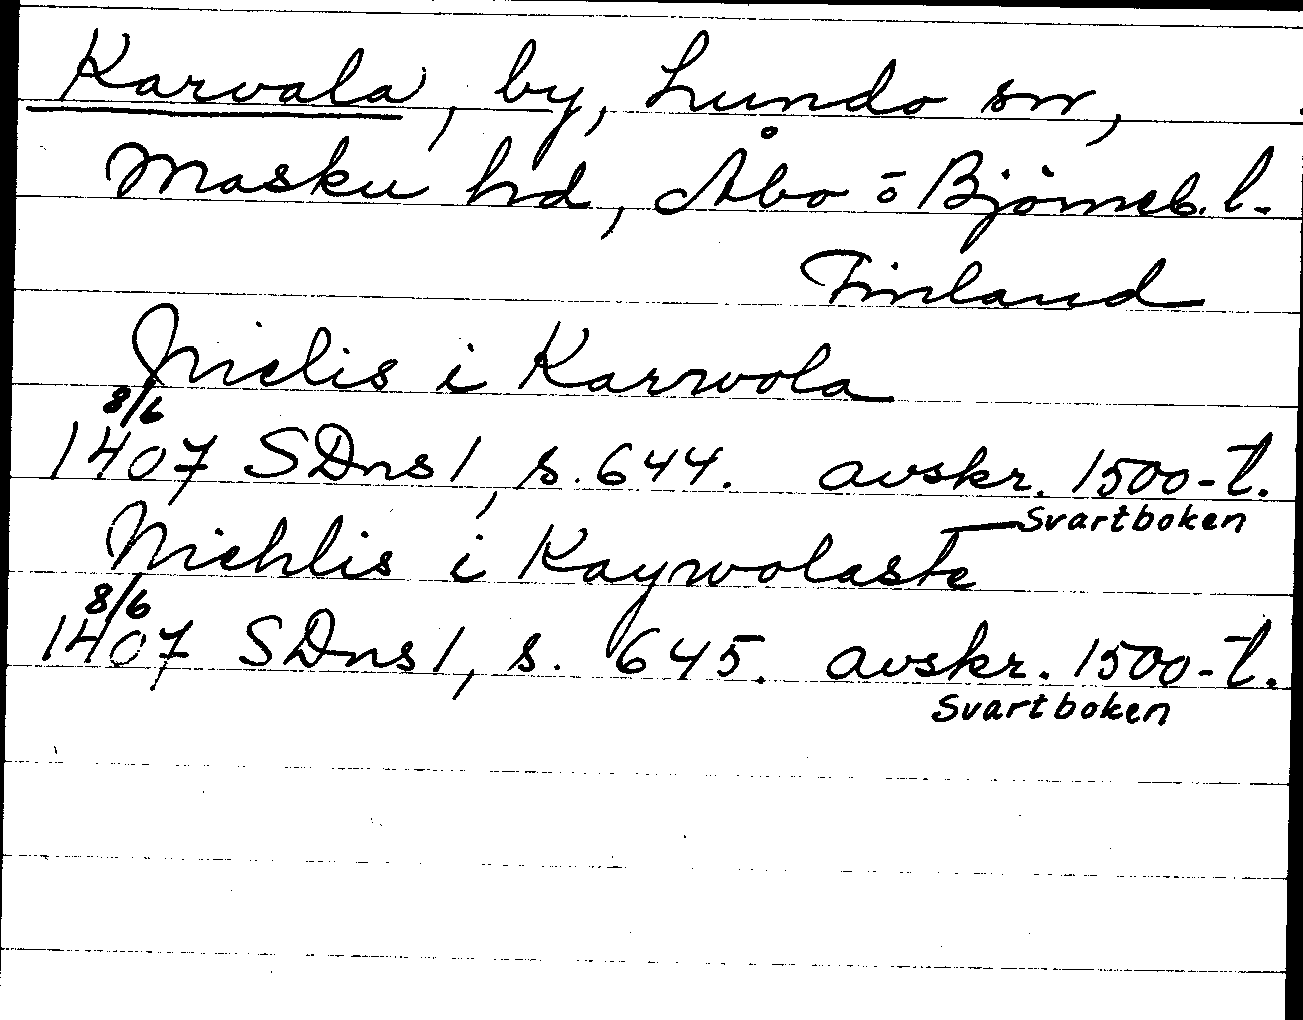 Karvala, by, Lundo sn,
Masku hd, Åbo o Björneb. l.
Finland
Nielis i Karwola
8/6
1407 SDns 1, s. 644. avskr. 1500-t.
Svartboken
Niehlis i Kaywolaste
8/6
1407 SDns 1, s. 645. avskr. 1500-t.
Svartboken